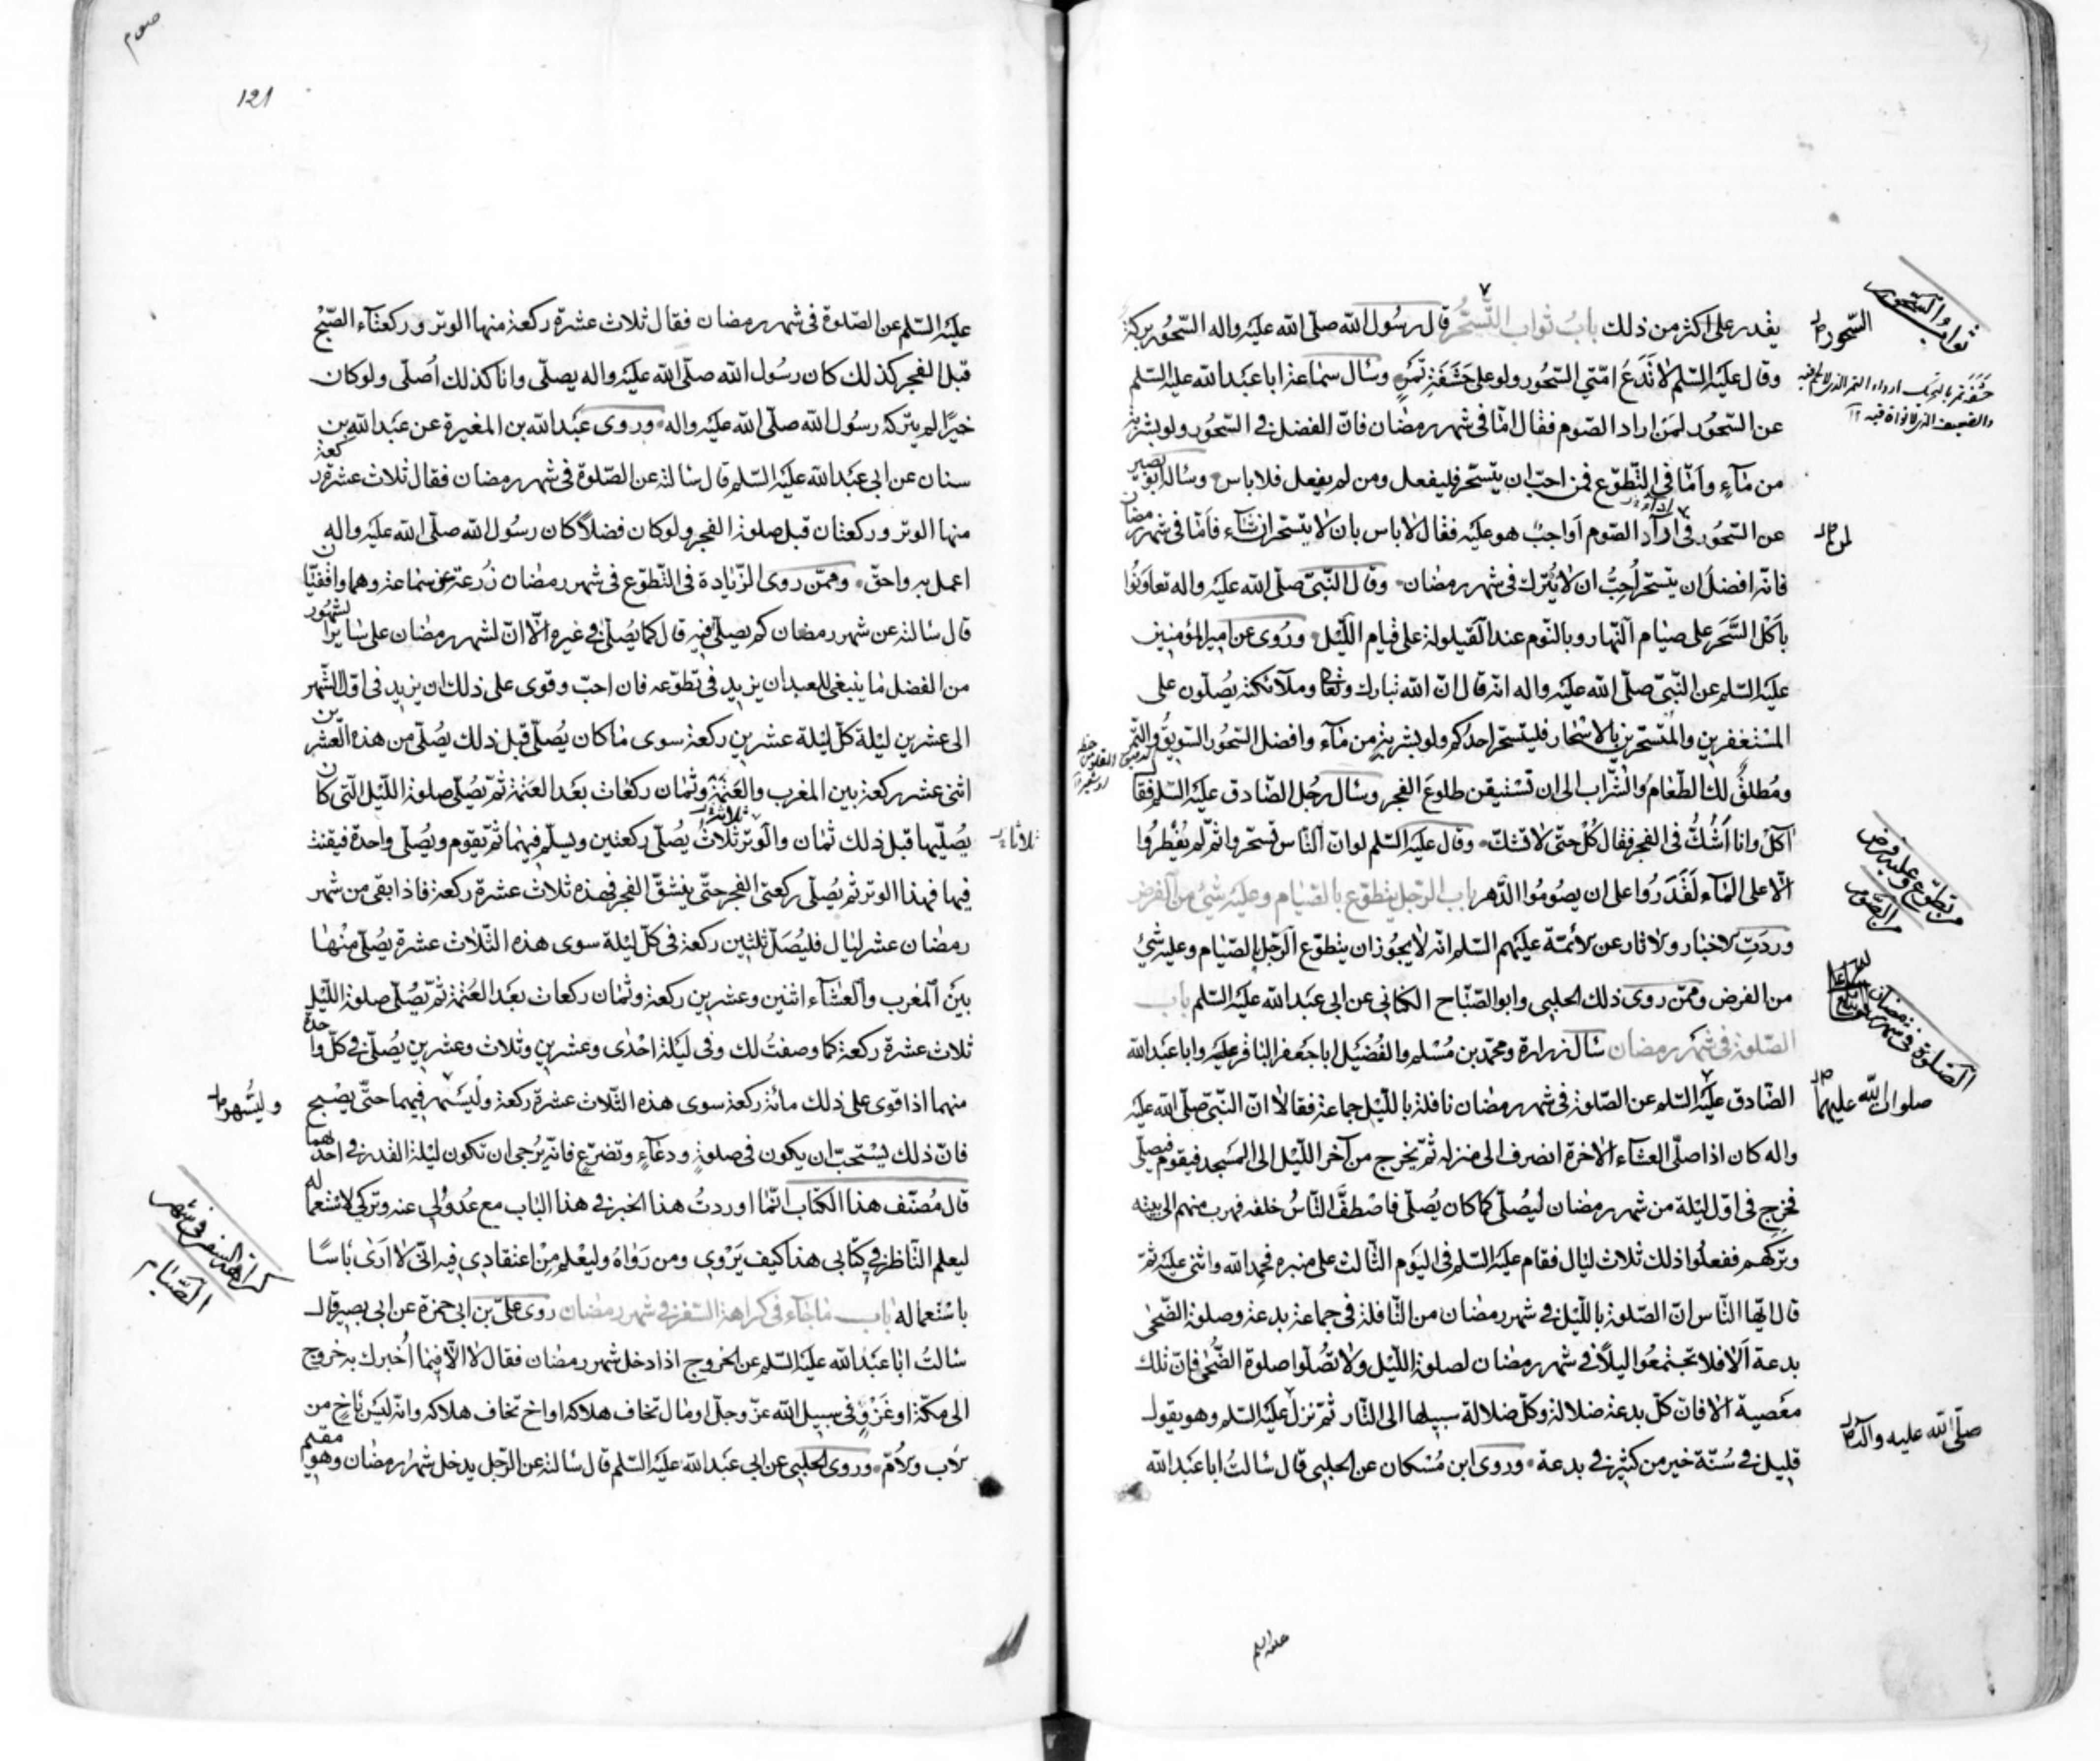 يقدر على اكثر من ذلك باب ثواب التسحّر قال رسول الله صلّى الله عليه واله السّحور بركة
وقال عليه السّلم لا تدع امّتي السّحور ولو على حشفة تمر وسأل سماعة ابا عبد الله عليه السّلم
عن السّحور لمن اراد الصّوم فقال امّا في شهر رمضان فانّ الفضل في السّحور ولو بشربة
من مآء وامّا في التّطوّع فمن احبّ ان يتسحّر فليفعل ومن لم يفعل فلا باس وسأله ابو بصير
عن السّحور في اراد الصّوم اواجب هو عليه فقال لا باس بان لا يتسحّر ان شاء فامّا في شهر رمضان
فانّه افضل ان يتسحّر اُحِبُّ ان لا يُترك في شهر رمضان وقال النّبيّ صلّى الله عليه واله تعاونوا
باكل السَّحَر على صيام النّهار وبالنّوم عند القيلولة على قيام اللّيل وروى عن امير المؤمنين
عليه السّلم عن النّبيّ صلّى الله عليه واله انّه قال انّ الله تبارك وتعالى وملآئكته يُصلّون على
المستغفرين والمتسحّرين بالاسحار فليتسحّر احدكم ولو بشربة من مآء وافضل السّحور السّويق والتّمر
ومُطلَقٌ لك الطّعام والشّراب الى ان تستيقن طلوع الفجر وسأل رجُل الصّادق عليه السّلم فقال
آكل وانا اَشُكُّ في الفجر فقال كُلْ حتّى لا تشكّ وقال عليه السّلم لو انّ النّاس تسحّروا ثمّ لم يُفطِرُوا
الّا على المآء لَقَدَرُوا على ان يصُومُوا الدّهر باب الرّجل يتطوّع بالصّيام وعليه شيءٌ من الفرض
وردت الاخبار والاثار عن الائمّة عليهم السّلم انّه لا يجوز ان يتطوّع الرّجل بالصّيام وعليه شيءٌ
من الفرض وممّن روى ذلك الحلبي وابو الصّبّاح الكناني عن ابي عبد الله عليه السّلم باب
الصّلوة في شهر رمضان سأل زرارة ومحمّد بن مُسْلم والفُضَيْل ابا جعفر الباقر عليه وابا عبد الله
الصّادق عليه السّلم عن الصّلوة في شهر رمضان نافلة باللّيل جماعة فقالا انّ النّبيّ صلّى الله عليه
واله كان اذا صلّى العشآء الاخرة انصرف الى منزله ثمّ يخرج من آخر اللّيل الى المسجد فيقوم فيصلّي
فخرج في اوّل ليلة من شهر رمضان ليُصلّي كما كان يُصلّي فاصْطَفَّ النّاسُ خلفه فهرب منهم الى بيته
وتركهم ففعلُوا ذلك ثلاث ليال فقام عليه السّلم في اليوم الثّالث على منبره فحمد الله واثنى عليه ثمّ
قال ايّها النّاس انّ الصّلوة باللّيل في شهر رمضان من النّافلة في جماعة بدعة وصلوة الضّحى
بدعة اَلا فلا تجتمعُوا ليلاً في شهر رمضان لصلوة اللّيل ولا تُصلّوا صلوة الضُّحى فانّ تلك
معصية الا فانّ كلّ بدعة ضلالة وكلّ ضلالة سبيلها الى النّار ثمّ نزل عليه السّلم وهو يقول
قليل في سُنّة خير من كثير في بدعة وروى ابن مُسْكان عن الحلبي قال سَالتُ ابا عبد الله
السّحور
ثواب السّحور
من تطوّع وعليه فرض
من الصّوم
الصّلوة في شهر رمضان
صلوات الله عليهما
صلّى الله عليه وآله
عليه السلم
صوم
121
عليه السّلم عن الصّلوة في شهر رمضان فقال ثلاث عشرة ركعة منها الوتر وركعتاء الصّبْح
قبل الفجر كذلك كان رسُول الله صلّى الله عليه واله يصلّي وانا كذلك اُصلّي ولو كان
خيرًا لم يتركه رسُول الله صلّى الله عليه واله وروى عبد الله بن المغيرة عن عبد الله بن
سنان عن ابي عبد الله عليه السّلم قال سَالته عن الصّلوة في شهر رمضان فقال ثلاث عشرة ركعة
منها الوتر وركعتان قبل صلوة الفجر ولو كان فضلاً كان رسُول الله صلّى الله عليه واله
اعمل به واحقّ وممّن روى الزّيادة في التّطوّع في شهر رمضان زُرعة عن سماعة وهما واقفيّان
قال سَالته عن شهر رمضان كم يصلّي فيه قال كما يُصلّي في غيره الّا انّ لشهر رمضان على سَاير الشهُور
من الفضل ما ينبغي للعبد ان يزيد في تطوّعه فان احبّ وقوى على ذلك ان يزيد في اوّل الشّهر
الى عشرين ليلة كلّ ليلة عشرين ركعة سوى ما كان يُصلّي قبل ذلك يُصلّي من هذه العشرين
اثنى عشر ركعة بين المغرب والعَتَمَة وثمان ركعات بعد العَتَمة ثمّ يُصلّي صلوة اللّيل الّتي كان
يُصلّيها قبل ذلك ثمان والوتر ثلاثٌ يُصلّي ركعتين ويسلّم فيهما ثمّ يقوم ويُصلّي واحدة فيقنت
فيها فهذا الوتر ثم يُصلّي ركعتي الفجر حتّى ينشقّ الفجر فهذه ثلاث عشرة ركعة فاذا بقي من شهر
رمضان عشر ليال فليُصَلّ ثلثين ركعة في كلّ ليلة سوى هذه الثّلاث عشرة يُصلّي مِنْها
بين المغرب والعشآء اثنين وعشرين ركعة وثمان ركعات بعد العَتَمة ثمّ يُصلّي صلوة اللّيل
ثلاث عشرة ركعة كما وصفتُ لك وفي ليلة احْدى وعشرين وثلاث وعشرين يُصلّي في كلّ واحدة
منهما اذا قوى على ذلك مائة ركعة سوى هذه الثّلاث عشرة ركعة ولْيَسْهر فيهما حتّى يصْبح
فانّ ذلك يُسْتحبّ ان يكون في صلوةٍ ودعآءٍ وتضرّعٍ فانّه يُرْجى ان تكون ليلة القدر في احدٰهما
قال مُصنّف هذا الكتاب انّما اوردتُ هذا الخبر في هذا الباب مع عُدُولي عنه وتركي لاستعماله
ليعلم النّاظر في كتابي هذا كيف يَرْوي ومن رَوَاهُ وليعْلم مِنْ اعتقادي فيه انّي لا اَرَى بَاسًا
باسْتعماله باب ما جآء في كراهة السّفر في شهر رمضان روى عليّ بن ابي حمزة عن ابي بصير قال
سَالتُ ابا عبد الله عليه السّلم عن الخروج اذا دخل شهر رمضان فقال لا الّا فيما اُخبرك به خروج
الى مكّة او غَزْوٍ في سبيل الله عزّ وجلّ او مال تخاف هلاكه او اخ تخاف هلاكه وانّه ليس باخٍ من
الاب والاُمّ وروى الحلبي عن ابي عبد الله عليه السّلم قال سَالته عن الرّجل يدخل شهر رمضان وهو مقيم
ثلاثا
وليسهر
كراهة السّفر في شهر
الصّيام